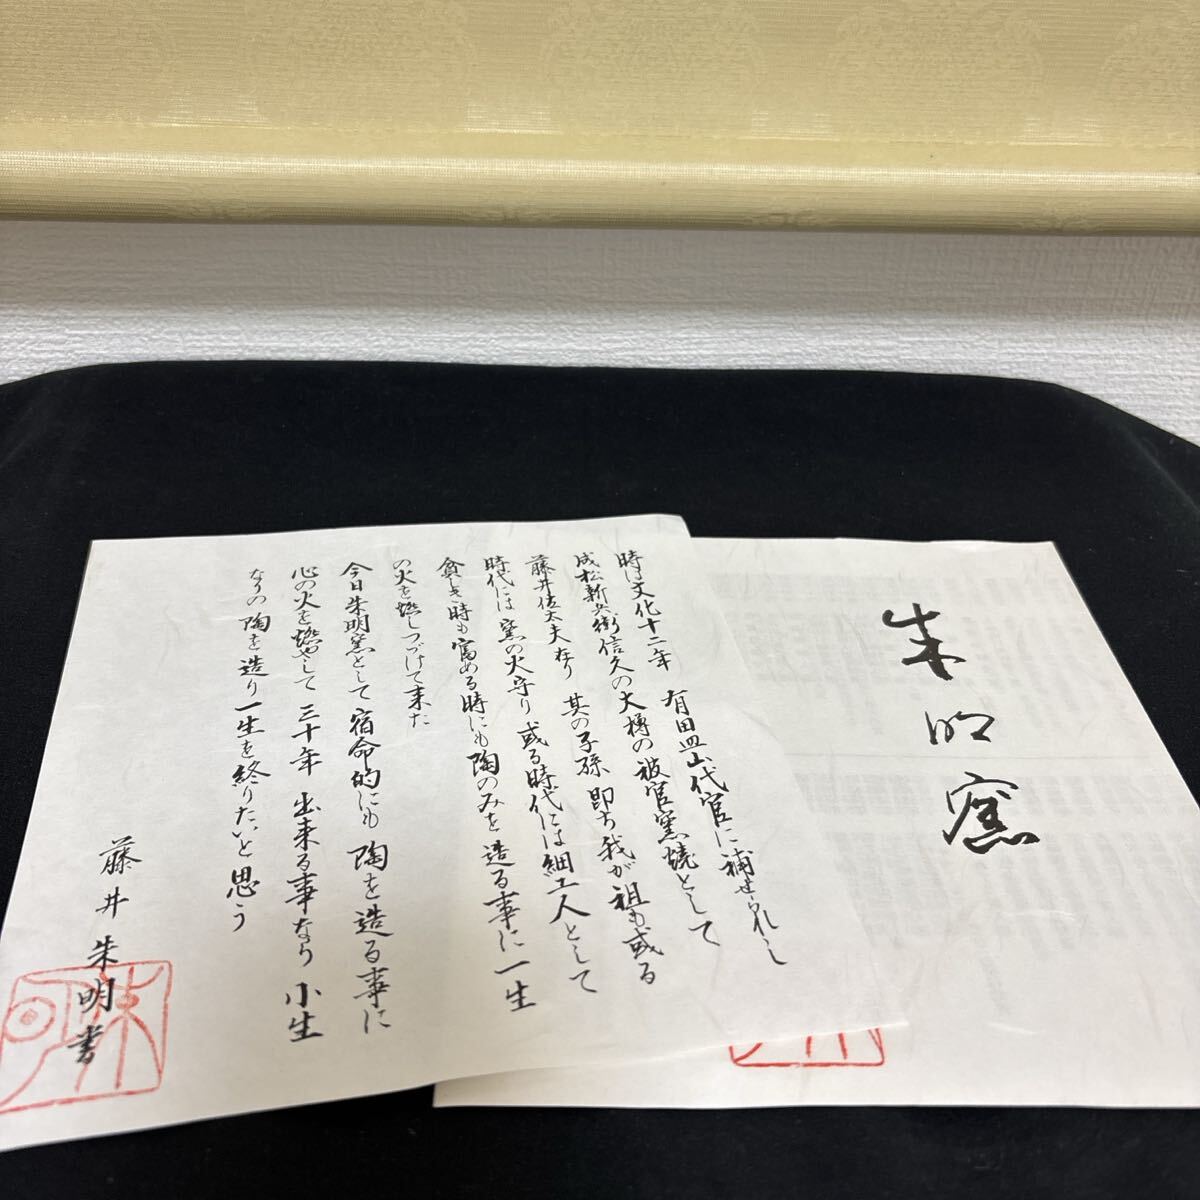 朱明窯
時は文化十二年 有田皿山代官に補せられし
成松新兵衛信久の大樽の被官窯焼として
藤井佐太夫なり 其の子孫 即ち我が祖も或る
時代には窯の火守り 或る時代には細工人として
貧しき時も富める時にも陶のみを造る事に一生
の火を燃しつづけて来た
今日朱明窯として 宿命的にも 陶を造る事に
心の火を燃やして 三十年 出来る事なり 小生
なりの陶を造り一生を終りたいと思う
藤井 朱明書
朱明